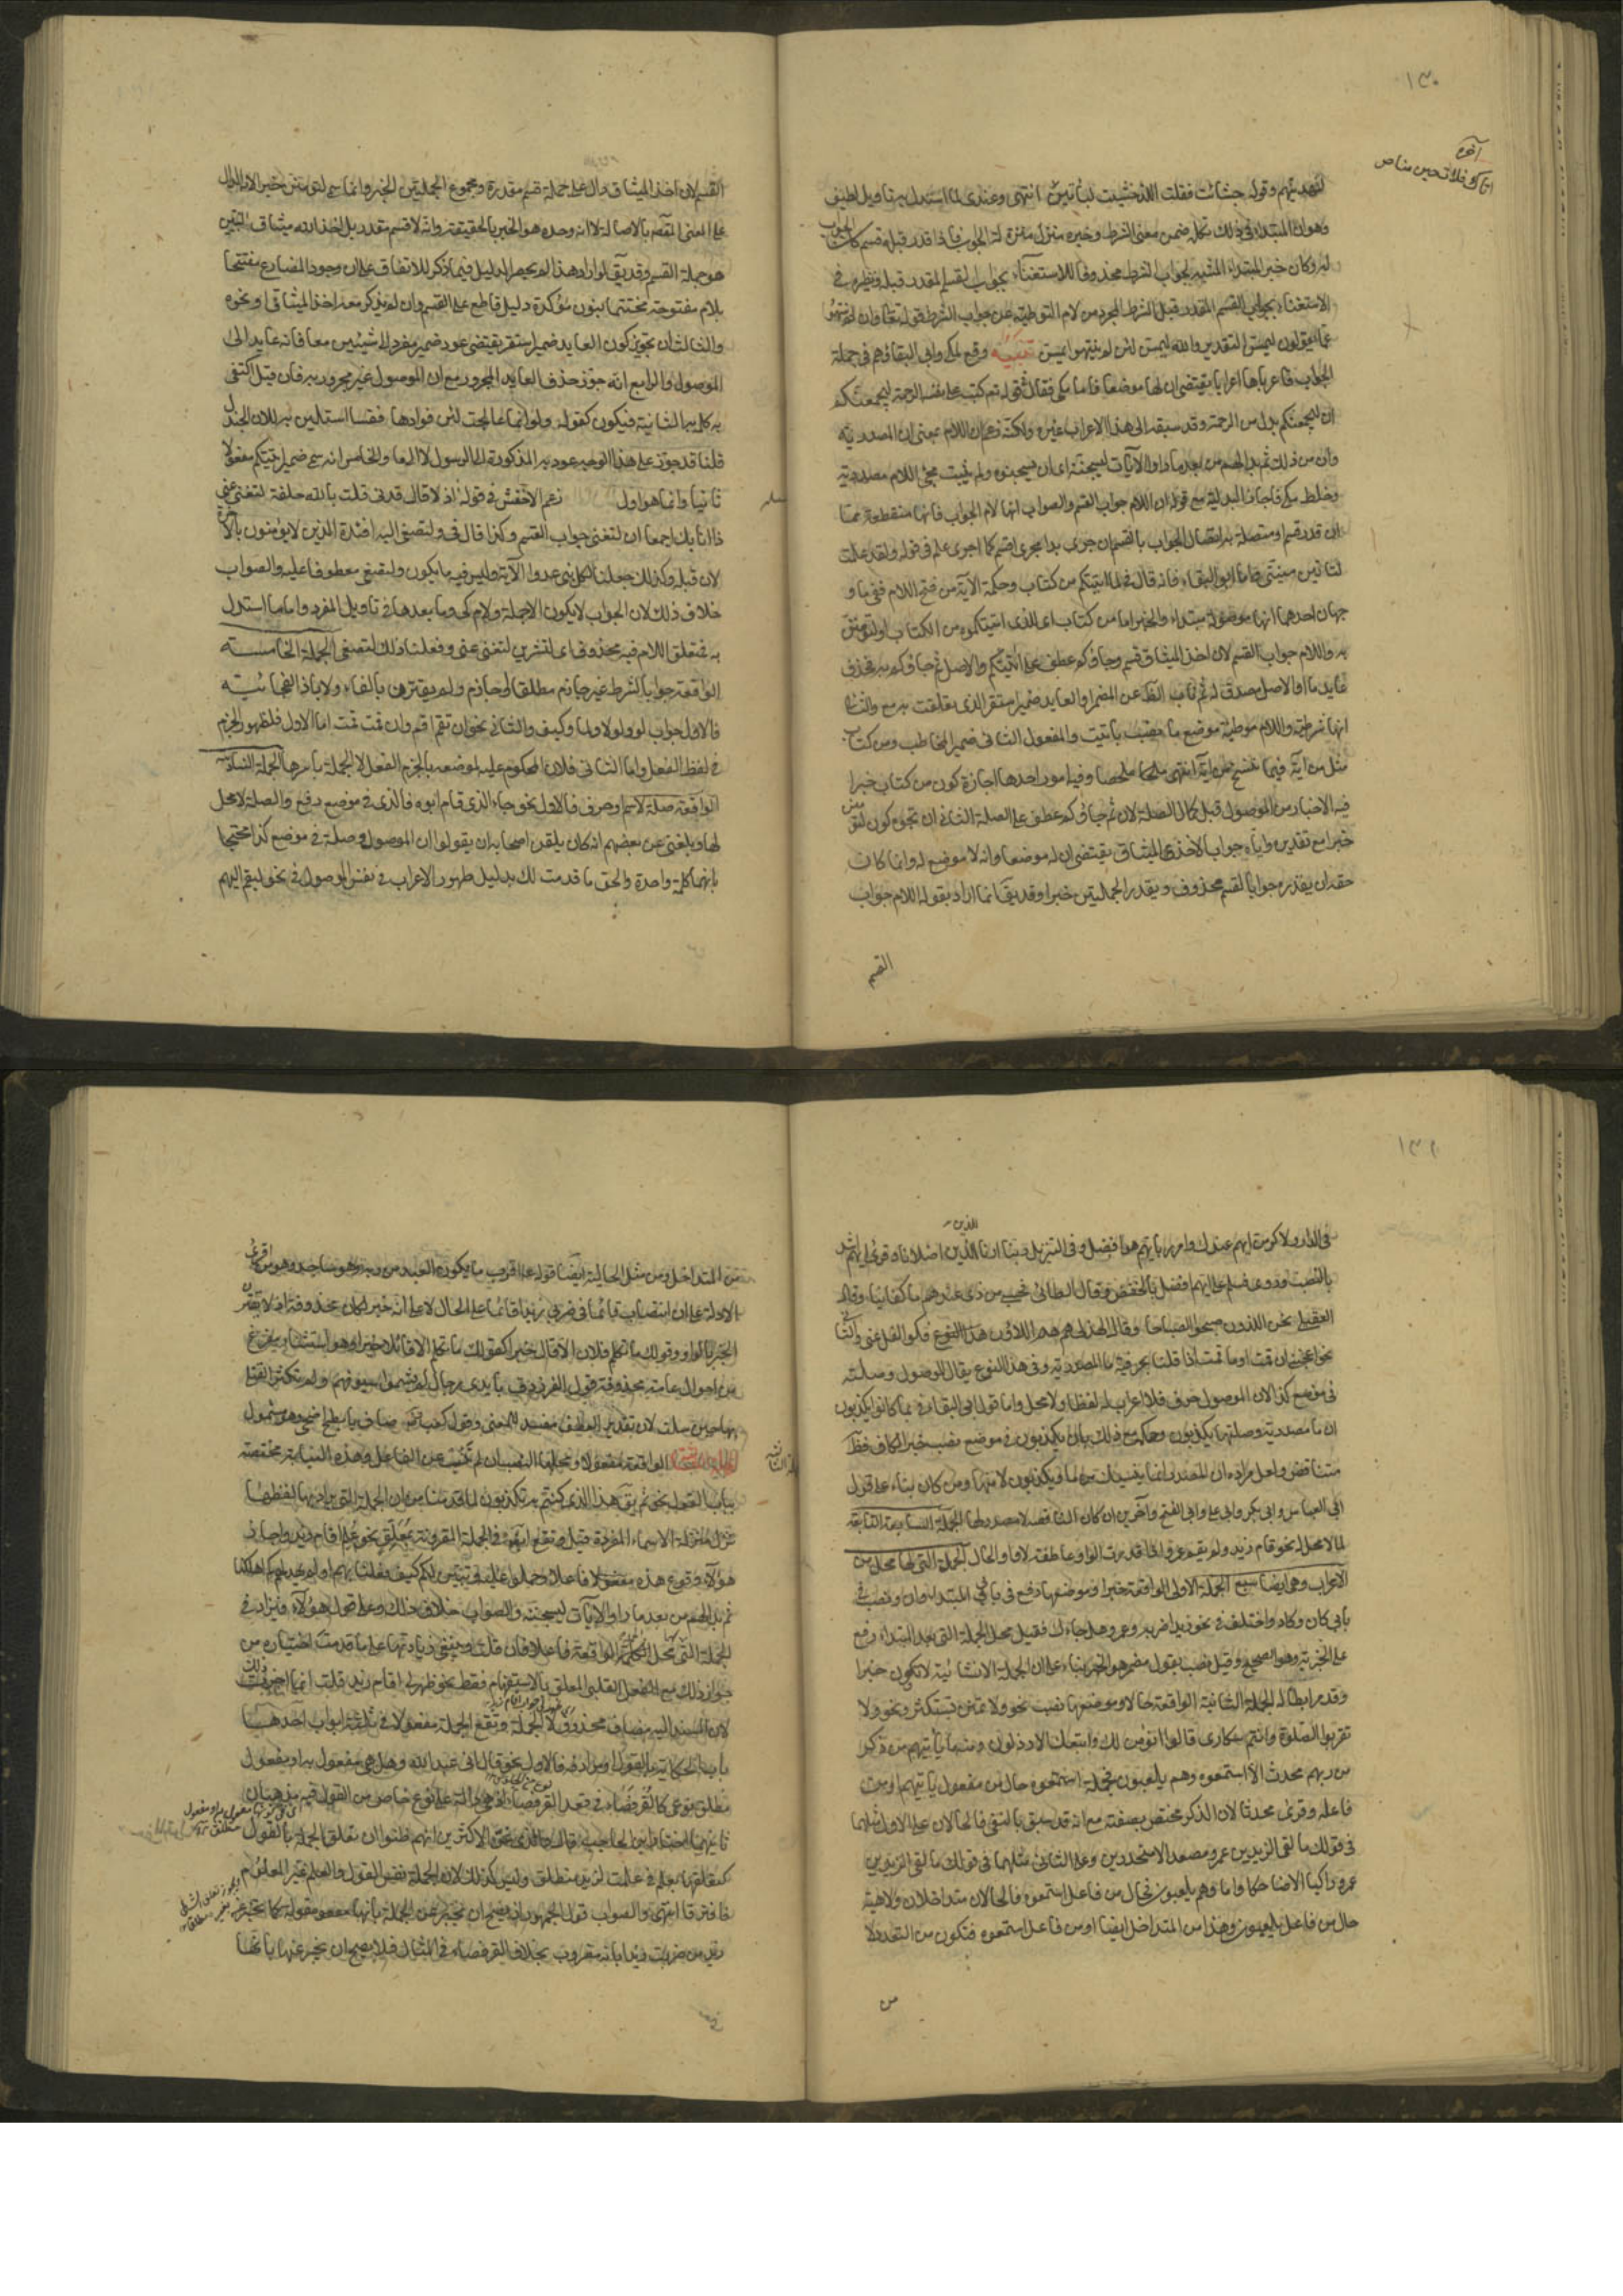 ١٣٠
لنهدينهم وقوله جشأت فقلت اللذ خشيت ليأتين انتهى وعندي لما استدل به تأويل لطيف
وهو ان المبتدا في ذلك كله ضمن معنى الشرط وخبره منزل منزلة الجواب فاذا قدر قبله قسم كان الجواب
له وكان خبر المبتداء المشبه لجواب الشرط محذوفا للاستغناء بجواب القسم المقدر قبله ونظيره في
الاستغناء بجواب القسم المقدر قبل الشرط المجرد من لام التوطية عن جواب الشرط قوله تعالى وان لم ينتهوا
عما يقولون ليمسن التقدير والله ليمسن لئن لم ينتهوا ليمسن تنبيه وقع لمكي وابي البقاء وهم في جملة
الجواب فاعرباها اعرابا يقتضي ان لها موضعا فاما مكي فقال في قوله تم كتب على نفسه الرحمة ليجمعنكم
ان ليجمعنكم بدل من الرحمة وقد سبقه الى هذا الاعراب غيره ولكنه زعم ان اللام بمعنى ان المصدرية
وان من ذلك ثم بدا لهم من بعد ما راوا الآيات ليسجننه اي ان يسجنوه ولم يثبت مجئ اللام مصدرية
وخلط مكي فاجاز البدلية مع قوله ان اللام جواب القسم والصواب انها لام الجواب فانها منقطعة مما
ان قدر قسم ومتصلة به اتصال الجواب بالقسم ان جرى بدا مجرى اقسم كما اجرى علم في قوله ولقد علمت
لتاتين منيتي واما ابو البقاء فانه قال في لما اتيتكم من كتاب وحكمة الآية من فتح اللام ففي ما و
جهان احدهما انها موصولة مبتداء والخبر اما من كتاب اي للذي اتيتكموه من الكتاب او لتؤمنن
به واللام جواب القسم لان اخذ الميثاق قسم وجاءكم عطف على اتيتكم والاصل ثم جاءكم به فحذف
عايد ما او الاصل مصدق له ثم ناب الظ عن المضمر او العايد ضمير استقر الذي تعلقت به مع والثاني
انها شرطية واللام موطية وموضع ما نصب باتيت والمفعول الثاني ضمير المخاطب ومن كتاب
مثل من آية فيما ننسخ من آية انتهى ملخصا وفيه امور احدها اجازة كون من كتاب خبرا
فيه الاخبار من الموصول قبل كمال الصلة لان ثم جاءكم عطف على الصلة الثاني ان تجويزه كون لتؤمنن
خبرا مع تقديره اياه جوابا لاخذ الميثاق يقتضي ان له موضعا وانه لا موضع له وانما كان
حقه ان يقدره جوابا لقسم محذوف ويقدر الجملتين خبرا وقد يقال انما اراد بقوله اللام جواب
القسم
القسم لان اخذ الميثاق دال على جملة قسم مقدرة ومجموع الجملتين الخبر وانما سمي لتؤمنن خبرا لانه الدال
على المعنى المقصود بالاصالة لا انه وحده هو الخبر بالحقيقة وانه لا قسم مقدر بل اخذ الله ميثاق النبيين
هو جملة القسم وقد يقال لو اراد هذا لم يحصر الدليل فيما ذكر للاتفاق على ان وجود المضارع مفتتحا
بلام مفتوحة مختتما بنون مؤكدة دليل قاطع على القسم وان لم يذكر معه اخذ الميثاق او نحوه
والثالث ان تجويز كون العايد ضمير استقر يقتضي عود ضمير مفرد الى شيئين معا فانه عايد الى
الموصول والرابع انه جوز حذف العايد المجرور مع ان الموصول غير مجرور به فان قيل اكتفى
به كلمة به الثانية فيكون كقوله ولو انما عالجت لين فوادها فقسا استلين به للان الجندل
قلنا قد جوز على هذا الوجه عود به المذكورة الى الرسول لا الى ما والخامس انه سمى ضمير اتيتكم مفعولا
ثانيا وانما هو اول زعم الاخفش في قوله اذ لا قال قدني قلت بالله حلفة لتغني عني
ذا انائك اجمعا ان لتغني جواب القسم وكذا قال في ولتصغى اليه افئدة الذين لا يؤمنون بالآخرة
لان قبله وكذلك جعلنا لكل نبي عدوا الآية وليس فيه ما يكون ولتصغى معطوفا عليه والصواب
خلاف ذلك لان الجواب لا يكون الا جملة ولام كي وما بعدها في تاويل المفرد واما ما استدل
به فتعلق اللام فيه محذوف اي لتشربن لتغني عني وفعلنا ذلك لتصغى الجملة الخامسة
الواقعة جوابا لشرط غير جازم مطلقا او جازم ولم يقترن بالفاء ولا باذا الفجائية
فالاول جواب لو ولولا ولما وكيف والثاني نحو ان تقم اقم وان قمت قمت اما الاول فلظهور الجزم
في لفظ الفعل واما الثاني فلان المحكوم عليه لموضعه بالجزم الفعل لا الجملة باسرها الجملة السادسة
الواقعة صلة لاسم وحرف فالاول نحو جاء الذي قام ابوه فالذي في موضع رفع والصلة لا محل
لها وبلغني عن بعضهم انه كان يلقن اصحابه ان يقولوا ان الموصول وصلته في موضع كذا محتجا
بانهما كلمة واحدة والحق ما قدمت لك بدليل ظهور الاعراب في نفس الموصول في نحو ليقم ايهم
في الدار ولاكرمن ايهم عندك وامرر بايهم هو افضل وفي التنزيل ربنا ارنا الذين اضلانا وقرئ ايهم اشد
بالنصب وروي فسلم على ايهم افضل بالخفض وقال الطائي فحسبي من ذي عندهم ما كفانيا وقال
العقيلي نحن اللذون صبحوا الصباحا وقال الهذلي هم اللاؤن فكوا الغل عني والثاني
نحو اعجبني ان قمت او ما قمت اذا قلنا بحرفية ما المصدرية وفي هذا النوع يقال الموصول وصلته
في موضع كذا لان الموصول حرف فلا اعراب له لفظا ولا محل واما قول ابي البقاء في بما كانوا يكذبون
ان ما مصدرية وصلتها يكذبون وحكمه مع ذلك بان يكذبون في موضع نصب خبرا لكان فظ
متناقض ولعل مراده ان المصدر انما ينسبك من ما ويكذبون لا منها ومن كان بناء على قول
ابي العباس وابي بكر وابي علي وابي الفتح وآخرين ان كان الناقصة لا مصدر لها الجملة السابعة التابعة
لما لا محل له نحو قام زيد ولم يقم عمرو اذا قدرت الواو عاطفة لا واو الحال الجملة التي لها محل من
الاعراب وهي ايضا سبع الجملة الاولى الواقعة خبرا وموضعها رفع في بابي المبتدا وان ونصب في
بابي كان وكاد واختلف في نحو زيد اضربه وعمرو هل جاءك فقيل محل الجملة التي بعد المبتداء رفع
على الخبرية وهو الصحيح وقيل نصب بقول مضمر هو الخبر بناء على ان الجملة الانشائية لا تكون خبرا
وقد مر ابطاله الجملة الثانية الواقعة حالا وموضعها نصب نحو ولا تمنن تستكثر ونحو ولا
تقربوا الصلوة وانتم سكارى قالوا انؤمن لك واتبعك الارذلون ومنها ما يأتيهم من ذكر
من ربهم محدث الا استمعوه وهم يلعبون فجملة استمعوه حال من مفعول يأتيهم او من
فاعله وقرئ محدثا لان الذكر مختص بصفته مع انه قد سبق بالنفي فالحالان على الاول مثلهما
في قولك ما لقى الزيدين عمرو مصعدا الا منحدرين وعلى الثاني مثلهما في قولك ما لقى الزيدين
عمرو راكبا الا ضاحكا واما وهم يلعبون فحال من فاعل استمعوه فالحالان متداخلان ولاهية
حال من فاعل يلعبون وهذا من المتداخل ايضا او من فاعل استمعوه فتكون من التعدد لا
من
من المتداخل ومن مثل الحالية ايضا قوله عم اقرب ما يكون العبد من ربه وهو ساجد وهو من اقوى
الادلة على ان انتصاب قائما في ضربي زيدا قائما على الحال لا على انه خبر لكان محذوفة اذ لا يقترن
الخبر بالواو وقولك ما تكلم فلان الا قال خيرا كقولك ما تكلم الا قائلا خيرا وهو استثناء مفرغ
من احوال عامة محذوفة وقول الفرزدق بايدي رجال لم يشيموا سيوفهم ولم تكثر القتلى
بها حين سلت لان تقدير العطف مفسد للمعنى وقول كعب صاف بابطح اضحى وهو مشمول
الواقعة مفعولا ومحلها النصب ان لم تنب عن الفاعل وهذه النيابة مختصة
بباب القول نحو ثم يقال هذا الذي كنتم به تكذبون لما قدمناه من ان الجملة التي يراد بها لفظها
تنزل منزلة الاسماء المفردة قيل وتقع ايضا في الجملة المقرونة بمعلق نحو علم اقام زيد واجاز
هؤلاء وقوع هذه فاعلا وحملوا عليه وتبين لكم كيف فعلنا بهم اولم يهد لهم كم اهلكنا
ثم بدا لهم من بعد ما راوا الآيات ليسجننه والصواب خلاف ذلك وعلى قول هؤلاء فيزاد في
الجمل التي لها محل الجملة الواقعة فاعلا فان قلت وينبغي زيادتها على ما قدمت اختياره من
جواز ذلك مع الفعل القلبي المعلق بالاستفهام فقط نحو ظهر لي اقام زيد قلت انما اجزت ذلك
لان المسند اليه مضاف محذوف لا الجملة وتقع الجملة مفعولا في ثلثة ابواب احدها
باب الحكاية بالقول او مرادفه فالاول نحو قال اني عبد الله وهل هي مفعول به او مفعول
مطلق نوعي كالقرفصاء في قعد القرفصاء اذ هي دالة على نوع خاص من القول فيه مذهبان
ثانيهما اختيار ابن الحاجب قال والذي غر الاكثرين انهم ظنوا ان تعلق الجملة بالقول
كتعلقها بعلم في علمت لزيد منطلق وليس كذلك لان الجملة نفس القول والعلم غير المعلوم
فافترقا انتهى والصواب قول الجمهور اذ يصح ان تخبر عن الجملة بانها مقولة كما تخبر عن
زيد من ضربت زيدا بانه مضروب بخلاف القرفصاء في المثال فلا يصح ان يخبر عنها بانها